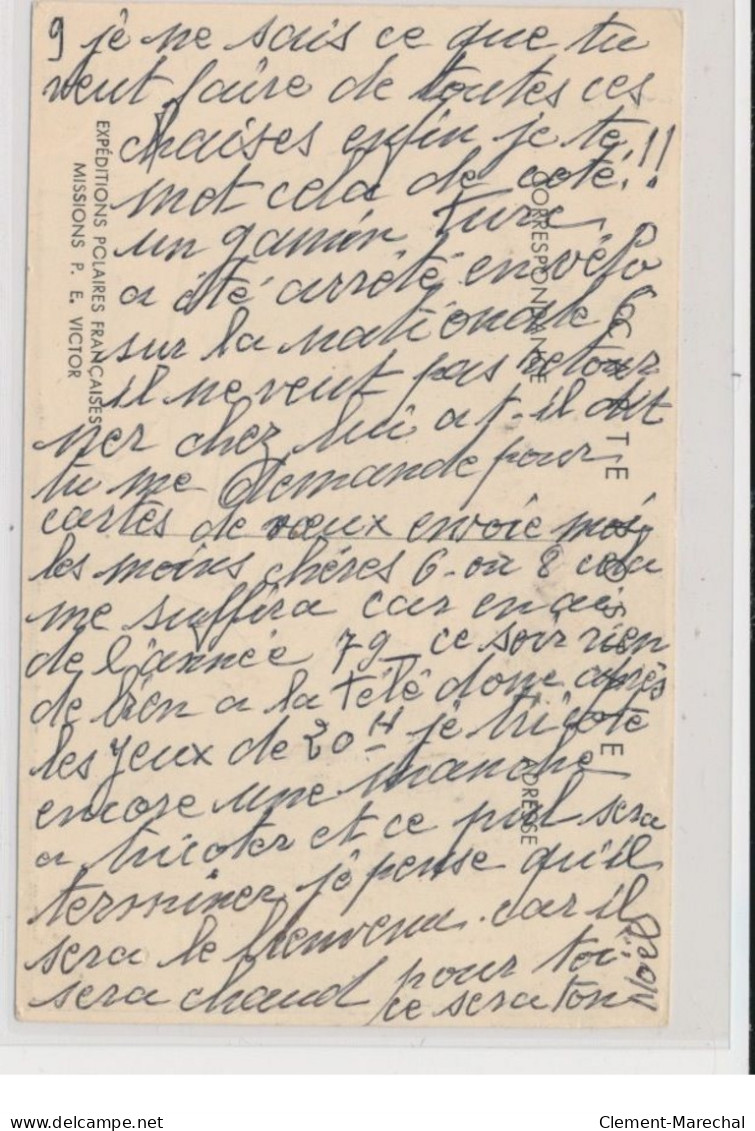 9 je ne sais ce que tu
veut faire de toutes ces
chaises enfin je te
met cela de coté!!
un gamin turc
a été arrêté en vélo
sur la nationale 6
il ne veut pas retour
ner chez lui a t-il dit
tu me demande pour
cartes de vœux envoie moi
les moins chères 6 ou 8 cela
me suffira car en ai
de l'année 79 ce soir rien
de bien a la télé donc après
les jeux de 20 H je tricote
encore une manche
a tricoter et ce pull sera
terminer je pense qu'il
sera le bienvenu car il
sera chaud pour toi
ce sera ton
Noël
EXPÉDITIONS POLAIRES FRANÇAISES
MISSIONS P. E. VICTOR
CARTE POSTALE
CORRESPONDANCE
ADRESSE
Clement-Marechal